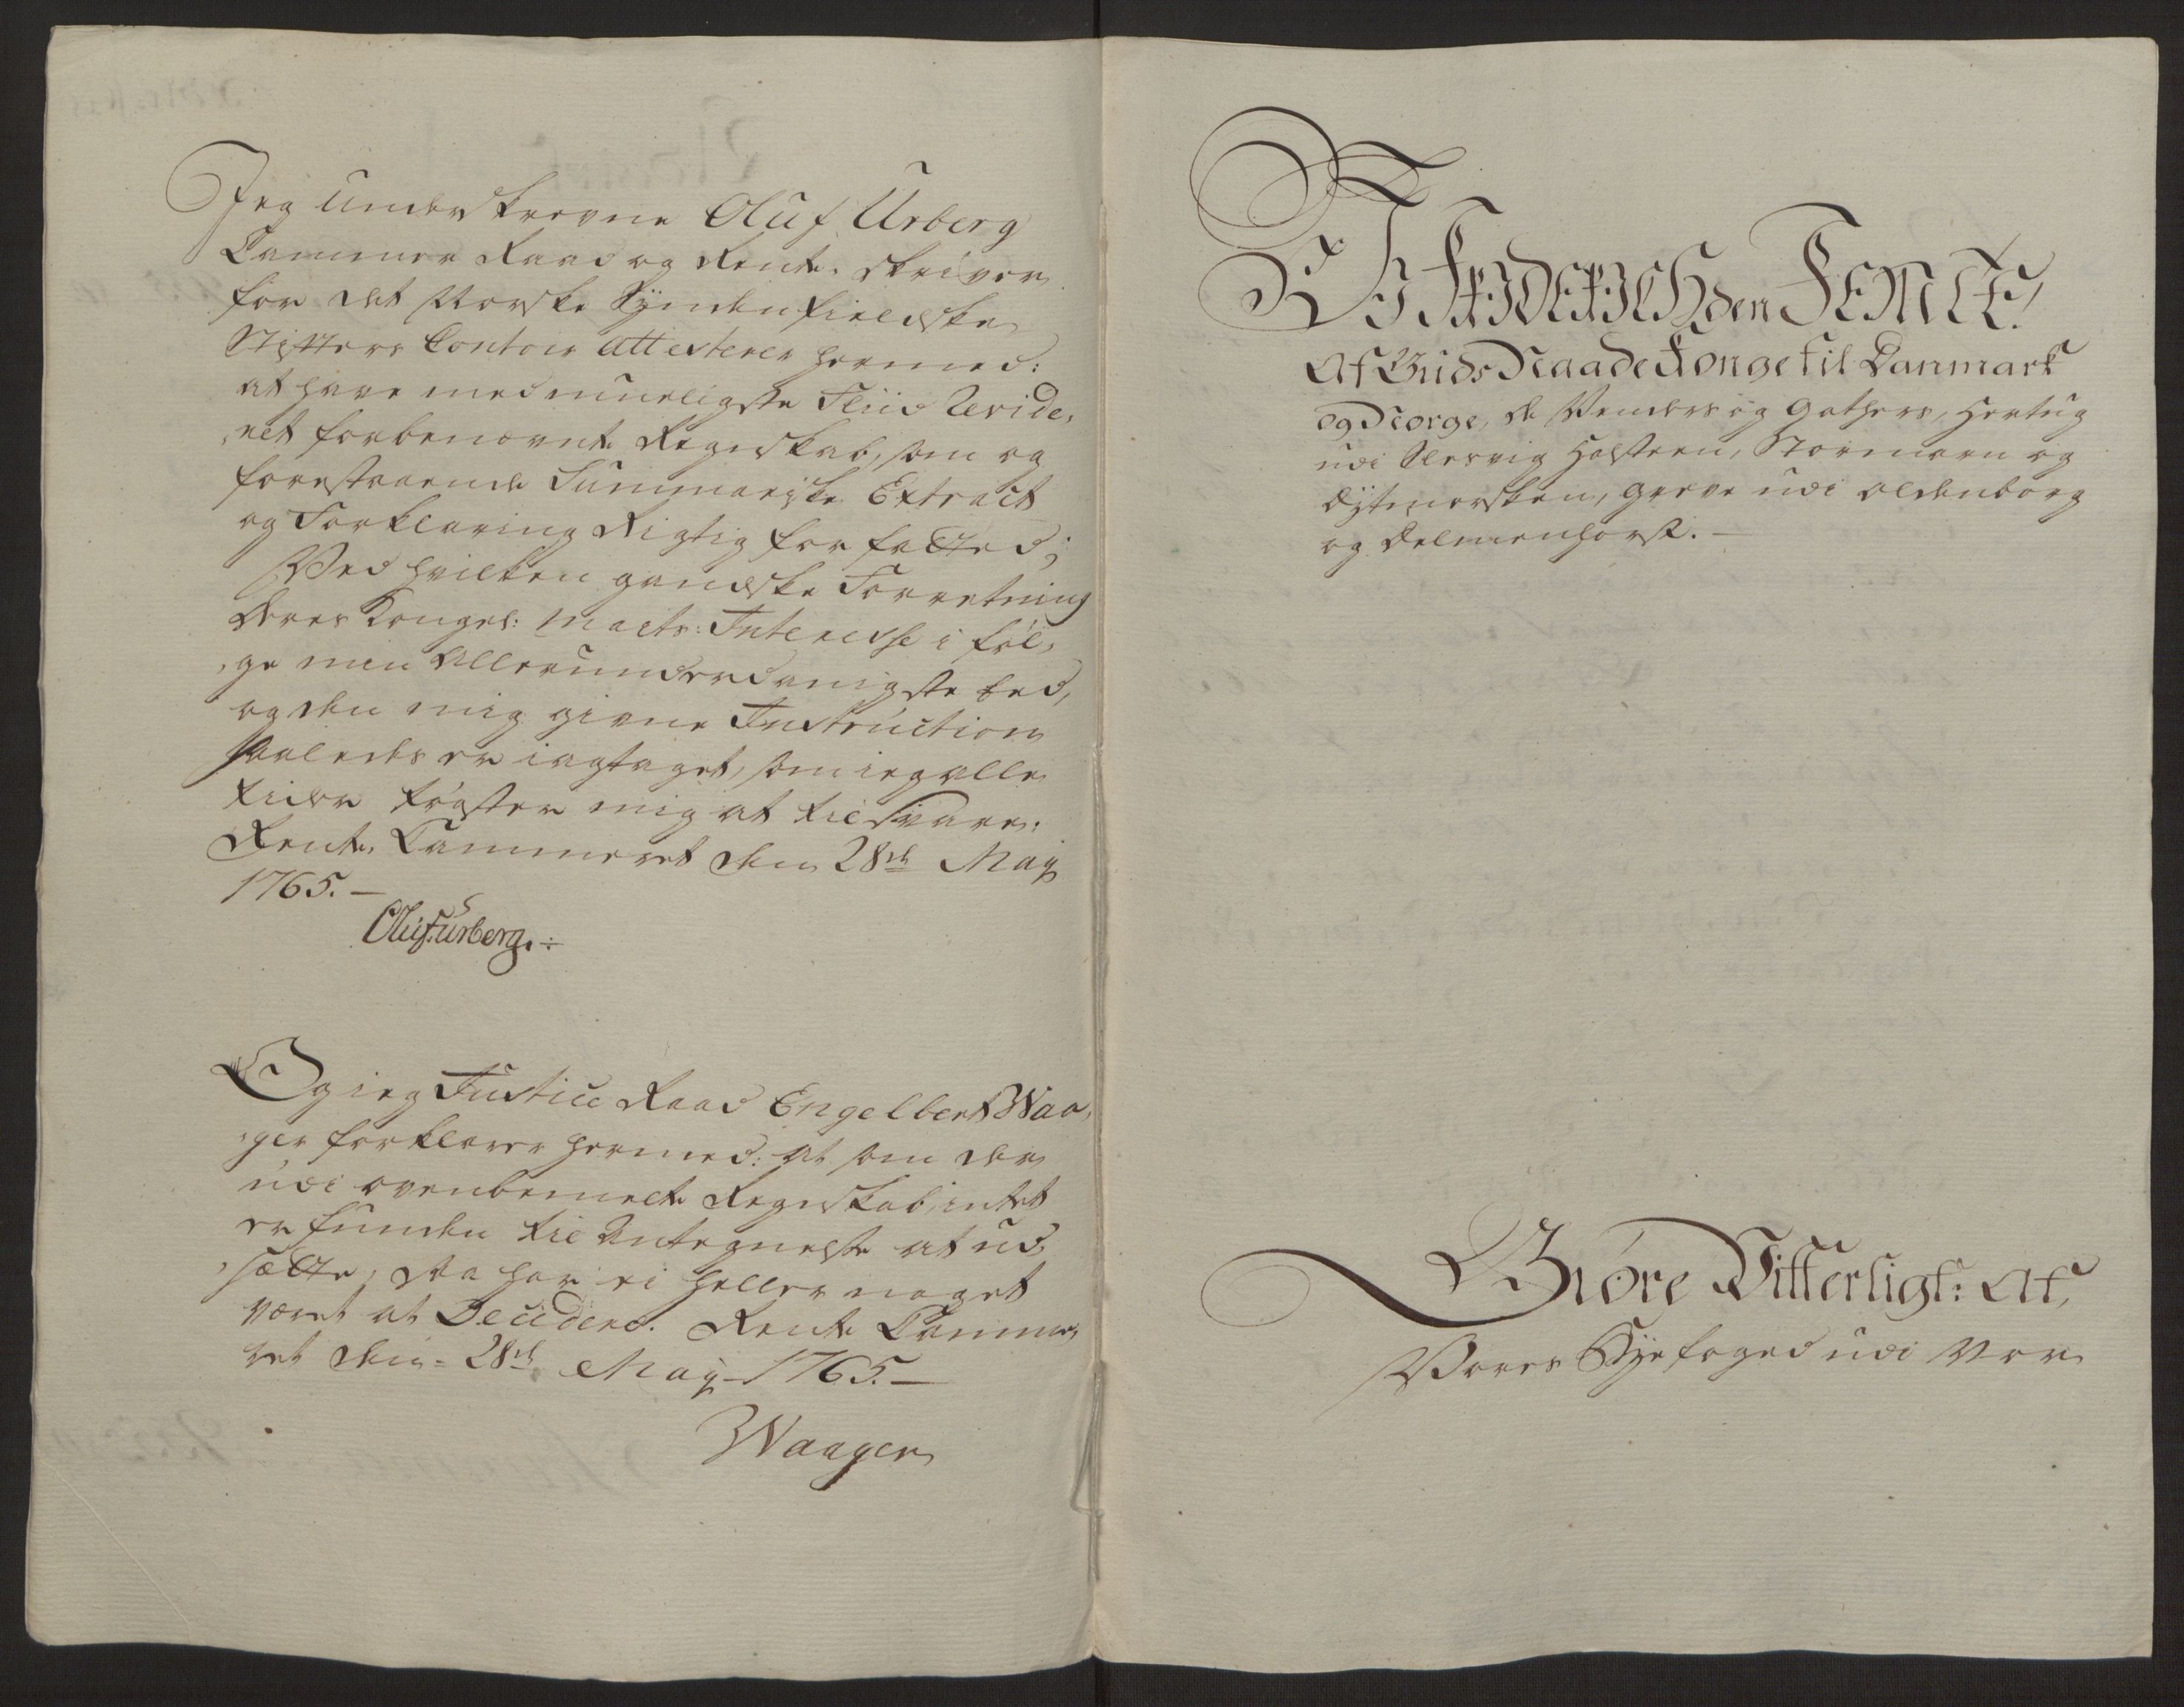 Jeg underskrevne Oluf Urberg
Cammer Raad og Rente-skriver
for det Norske Syndenfieldske
Stifters Contoir attesterer hermed:
at have med mueligste Fliid Revide-
ret forbenævnte Regnskab, som og
forestaaende Summariske Extract
og Forklaring Rigtig forfatted;
Ved hvilken gandske Forretning
Deres Kongel: Maiets: Interesse i føl-
ge min Allerunderdanigste Eed,
og den mig givne Instruction
saaledes er iagttaget, som ieg alle
tider trøster mig at tilsvare.
Rente-Cammeret den 28de Maij
1765.—
Oluf Urberg.÷
Og ieg Justice Raad Engelbert Waa-
ger forklarer hermed: at som der
udi ovenbemelte Regnskab, intet
er funden til Antegnelse at ud-
sætte, Saa har ei heller noget
været at Decidere. Rente Camme-
ret den 28de Maij 1765.—
Waager
Wi Friderich den Femte,
Af Guds Naade Konge til Danmark
og Norge, de Venders og Gothers, Hertug
udi Slesvig Holsteen, Stormarn og
Dytmersken, Greve udi Oldenborg
og Delmenhorst.—
Giøre Vitterligt: At,
Vores Byefoged udi Vor